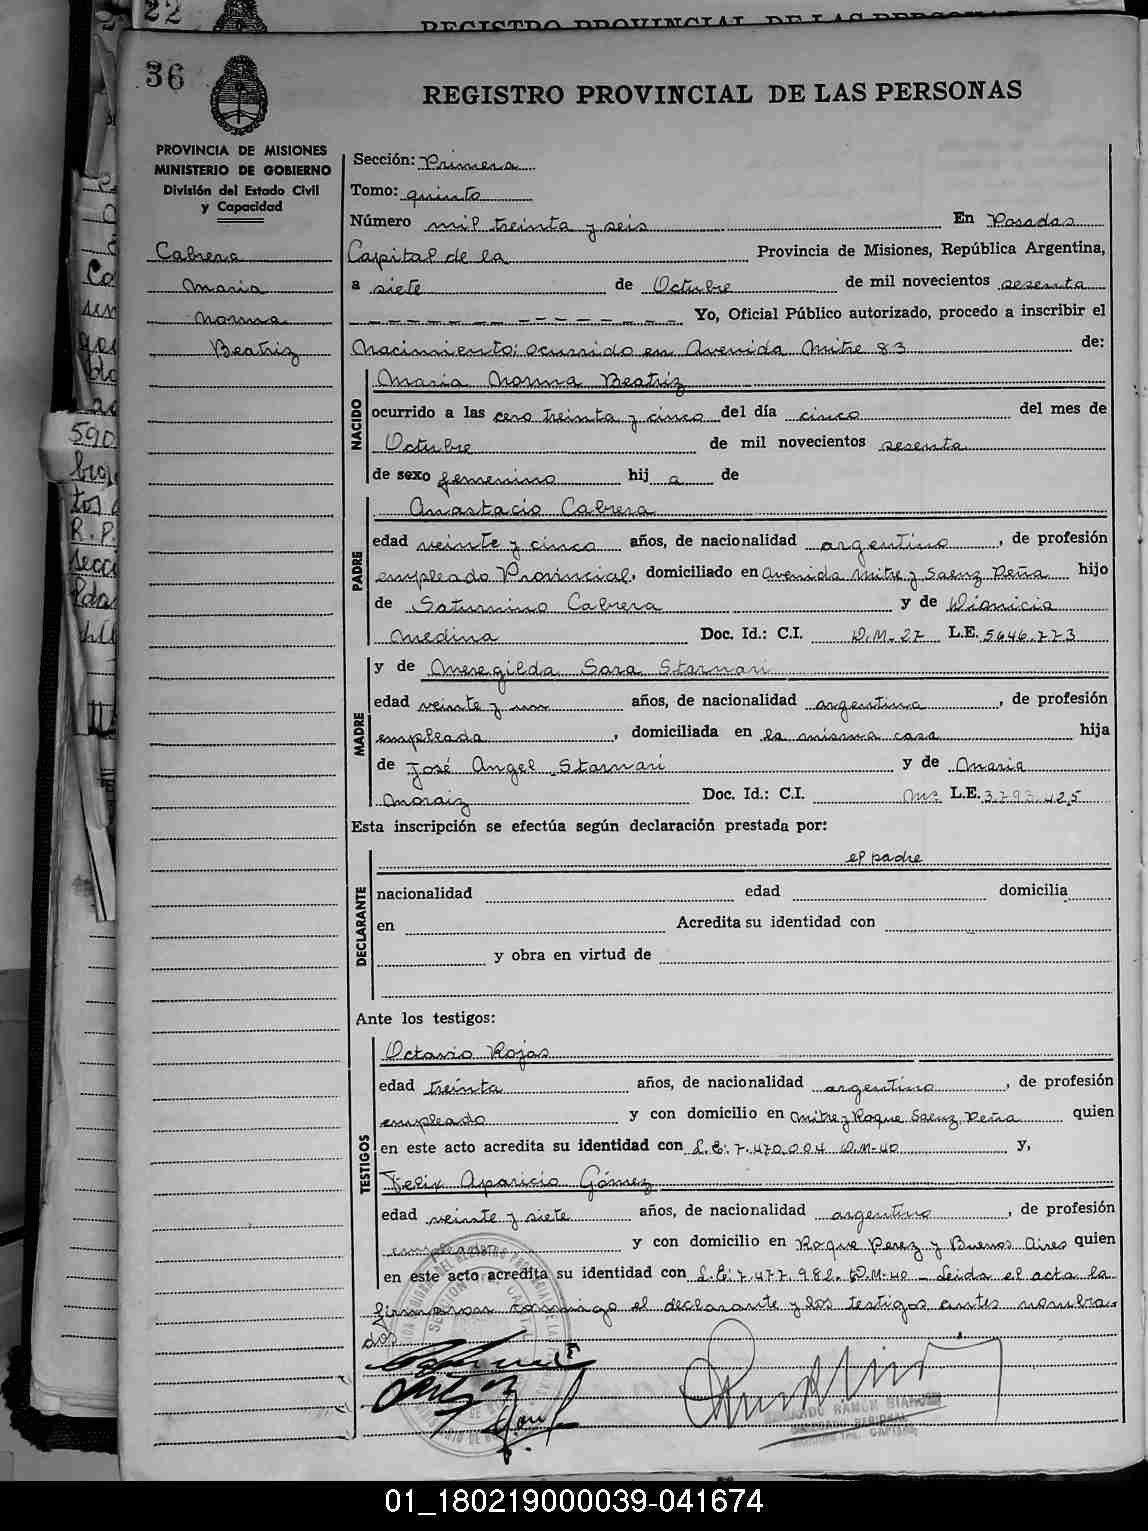 22
REGISTRO PROVINCIAL DE LAS PERSONAS
36
REGISTRO PROVINCIAL DE LAS PERSONAS
PROVINCIA DE MISIONES
MINISTERIO DE GOBIERNO
División del Estado Civil
y Capacidad
Cabrera
Maria
Norma
Beatriz
Sección: Primera
Tomo: quinto
Número mil treinta y seis En Posadas
Capital de la Provincia de Misiones, República Argentina,
a siete de Octubre de mil novecientos sesenta
Yo, Oficial Público autorizado, procedo a inscribir el
Nacimiento; ocurrido en Avenida Mitre 83 de:
NACIDO
Maria Norma Beatriz
ocurrido a las cero treinta y cinco del día cinco del mes de
Octubre de mil novecientos sesenta
de sexo femenino hij a de
PADRE
Anastacio Cabrera
edad veinte y cinco años, de nacionalidad argentino, de profesión
empleado Provincial, domiciliado en Avenida Mitre y Saenz Peña hijo
de Saturnino Cabrera y de Dionicia
Medina Doc. Id.: C.I. D.M. 27 L.E. 5646.773
MADRE
y de Meregilda Sara Starnari
edad veinte y un años, de nacionalidad argentina, de profesión
empleada, domiciliada en la misma casa hija
de José Angel Starnari y de Maria
Moraiz Doc. Id.: C.I. L.E. 3.793.425
Esta inscripción se efectúa según declaración prestada por:
DECLARANTE
el padre
nacionalidad edad domicilia
en Acredita su identidad con
y obra en virtud de
Ante los testigos:
TESTIGOS
Octavio Rojas
edad treinta años, de nacionalidad argentino, de profesión
empleado y con domicilio en Mitre y Roque Saenz Peña quien
en este acto acredita su identidad con L.E: 7.470.004 D.M-40 y,
Felix Aparicio Gómez
edad veinte y siete años, de nacionalidad argentino, de profesión
empleado y con domicilio en Roque Perez y Buenos Aires quien
en este acto acredita su identidad con L.E: 7.477.982. D.M-40 - Leida el acta la
firmaron conmigo el declarante y los testigos antes nombra-
dos
RAMON
01_180219000039-041674